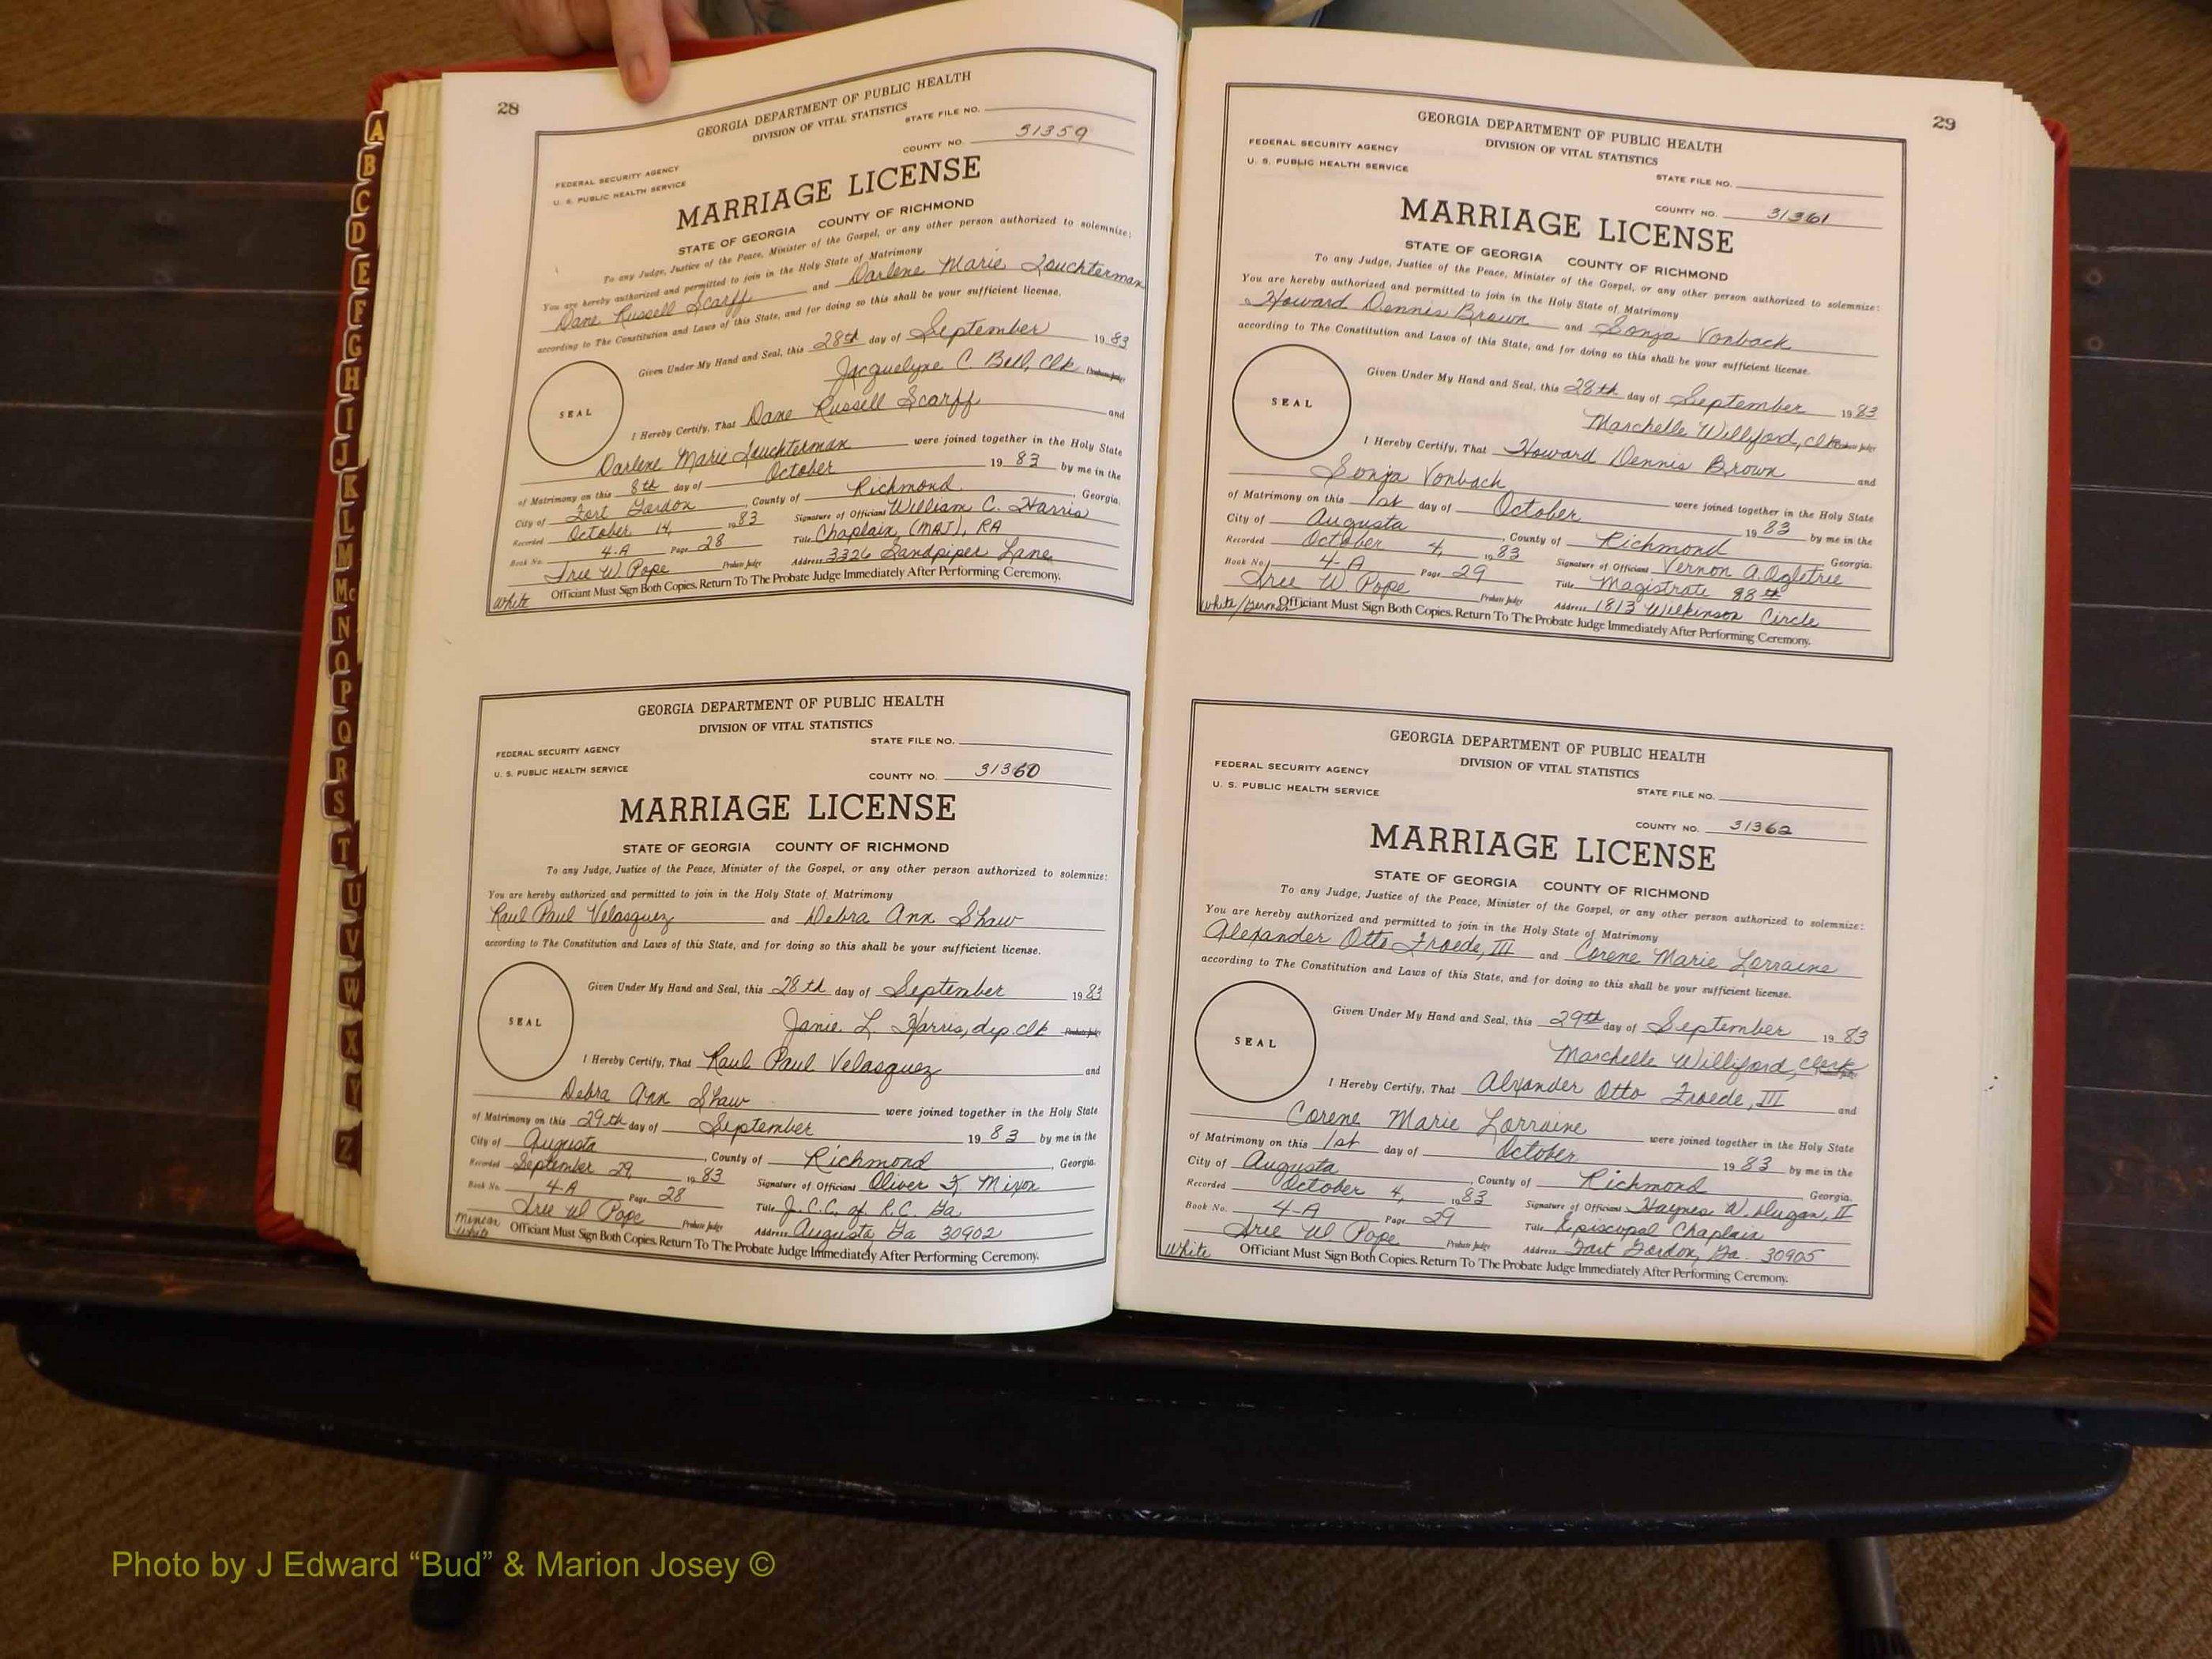 28
GEORGIA DEPARTMENT OF PUBLIC HEALTH
DIVISION OF VITAL STATISTICS
STATE FILE NO.
COUNTY NO. 31359
FEDERAL SECURITY AGENCY
U. S. PUBLIC HEALTH SERVICE
MARRIAGE LICENSE
STATE OF GEORGIA COUNTY OF RICHMOND
To any Judge, Justice of the Peace, Minister of the Gospel, or any other person authorized to solemnize:
You are hereby authorized and permitted to join in the Holy State of Matrimony
Dane Russell Scarff and Darlene Marie Louchterman
according to The Constitution and Laws of this State, and for doing so this shall be your sufficient license.
Given Under My Hand and Seal, this 28th day of September 1983
Jacquelyne C. Bell, Clk Probate Judge
SEAL
I Hereby Certify, That Dane Russell Scarff and
Darlene Marie Louchterman were joined together in the Holy State
of Matrimony on this 8th day of October 1983 by me in the
City of Fort Gordon, County of Richmond, Georgia.
Recorded October 14, 1983 Signature of Officiant William C. Harris
Book No. 4-A Page 28 Title Chaplain, (MAJ), RA
Iree W Pope Probate Judge Address 3326 Sandpiper Lane
White Officiant Must Sign Both Copies. Return To The Probate Judge Immediately After Performing Ceremony.
GEORGIA DEPARTMENT OF PUBLIC HEALTH
DIVISION OF VITAL STATISTICS
STATE FILE NO.
FEDERAL SECURITY AGENCY
U. S. PUBLIC HEALTH SERVICE
COUNTY NO. 31360
MARRIAGE LICENSE
STATE OF GEORGIA COUNTY OF RICHMOND
To any Judge, Justice of the Peace, Minister of the Gospel, or any other person authorized to solemnize:
You are hereby authorized and permitted to join in the Holy State of Matrimony
Raul Paul Velasquez and Debra Ann Shaw
according to The Constitution and Laws of this State, and for doing so this shall be your sufficient license.
Given Under My Hand and Seal, this 28th day of September 1983
Janie L. Harris, dep. clk Probate Judge
SEAL
I Hereby Certify, That Raul Paul Velasquez and
Debra Ann Shaw were joined together in the Holy State
of Matrimony on this 29th day of September 1983 by me in the
City of Augusta, County of Richmond, Georgia.
Recorded September 29, 1983 Signature of Officiant Oliver K. Mixon
Book No. 4-A Page 28 Title J.C.C. of R.C. Ga
Iree W Pope Probate Judge Address Augusta, Ga 30902
White Officiant Must Sign Both Copies. Return To The Probate Judge Immediately After Performing Ceremony.
29
GEORGIA DEPARTMENT OF PUBLIC HEALTH
DIVISION OF VITAL STATISTICS
FEDERAL SECURITY AGENCY
U. S. PUBLIC HEALTH SERVICE
STATE FILE NO.
COUNTY NO. 31361
MARRIAGE LICENSE
STATE OF GEORGIA COUNTY OF RICHMOND
To any Judge, Justice of the Peace, Minister of the Gospel, or any other person authorized to solemnize:
You are hereby authorized and permitted to join in the Holy State of Matrimony
Howard Dennis Brown and Sonja Vonback
according to The Constitution and Laws of this State, and for doing so this shall be your sufficient license.
Given Under My Hand and Seal, this 28th day of September 1983
Marchelle Williford, clk Probate Judge
SEAL
I Hereby Certify, That Howard Dennis Brown and
Sonja Vonback were joined together in the Holy State
of Matrimony on this 1st day of October 1983 by me in the
City of Augusta, County of Richmond Georgia.
Recorded October 4, 1983 Signature of Officiant Vernon A. Ogletree
Book No. 4-A Page 29 Title Magistrate 88th
Iree W Pope Probate Judge Address 1813 Wilkinson Circle
White/German Officiant Must Sign Both Copies. Return To The Probate Judge Immediately After Performing Ceremony.
GEORGIA DEPARTMENT OF PUBLIC HEALTH
DIVISION OF VITAL STATISTICS
FEDERAL SECURITY AGENCY
U. S. PUBLIC HEALTH SERVICE
STATE FILE NO.
COUNTY NO. 31362
MARRIAGE LICENSE
STATE OF GEORGIA COUNTY OF RICHMOND
To any Judge, Justice of the Peace, Minister of the Gospel, or any other person authorized to solemnize:
You are hereby authorized and permitted to join in the Holy State of Matrimony
Alexander Otto Froede, III and Corene Marie Lorraine
according to The Constitution and Laws of this State, and for doing so this shall be your sufficient license.
Given Under My Hand and Seal, this 29th day of September 1983
Marchelle Williford, Clerk
SEAL
I Hereby Certify, That Alxander Otto Froede, III and
Corene Marie Lorraine were joined together in the Holy State
of Matrimony on this 1st day of October 1983 by me in the
City of Augusta, County of Richmond Georgia.
Recorded October 4, 1983 Signature of Officiant Haynes W. Dugan, II
Book No. 4-A Page 29 Title Episcopal Chaplain
Iree W Pope Probate Judge Address Fort Gordon, Ga. 30905
White Officiant Must Sign Both Copies. Return To The Probate Judge Immediately After Performing Ceremony.
A
B
C
D
E
F
G
H
I
J
K
L
M
Mc
N
O
P
Q
R
S
T
U
V
W
X
Y
Z
Photo by J Edward “Bud” & Marion Josey ©